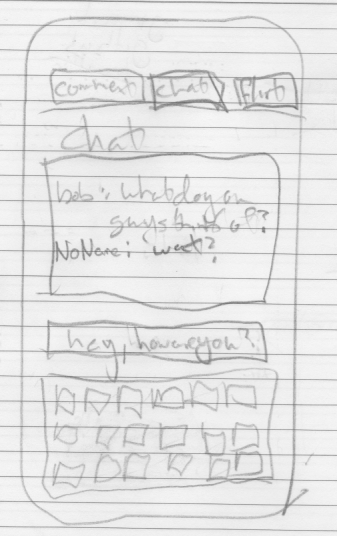 connect chat flirt
chat
bob: what do you
guys think of?
NoName: wat?
hey, how are you?